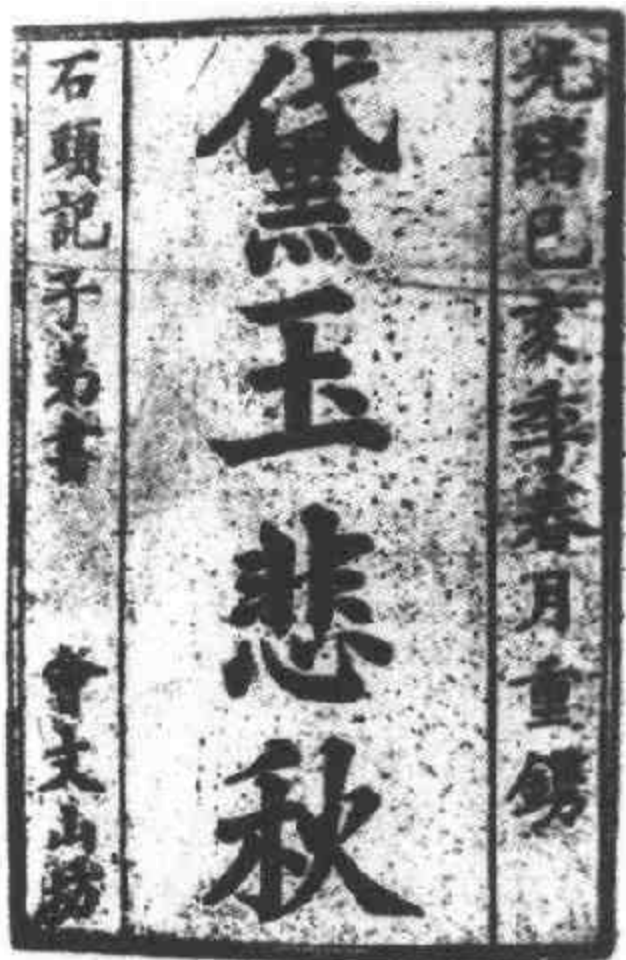 光緒己亥季春月重鐫
黛玉悲秋
石頭記子弟書 會文山房